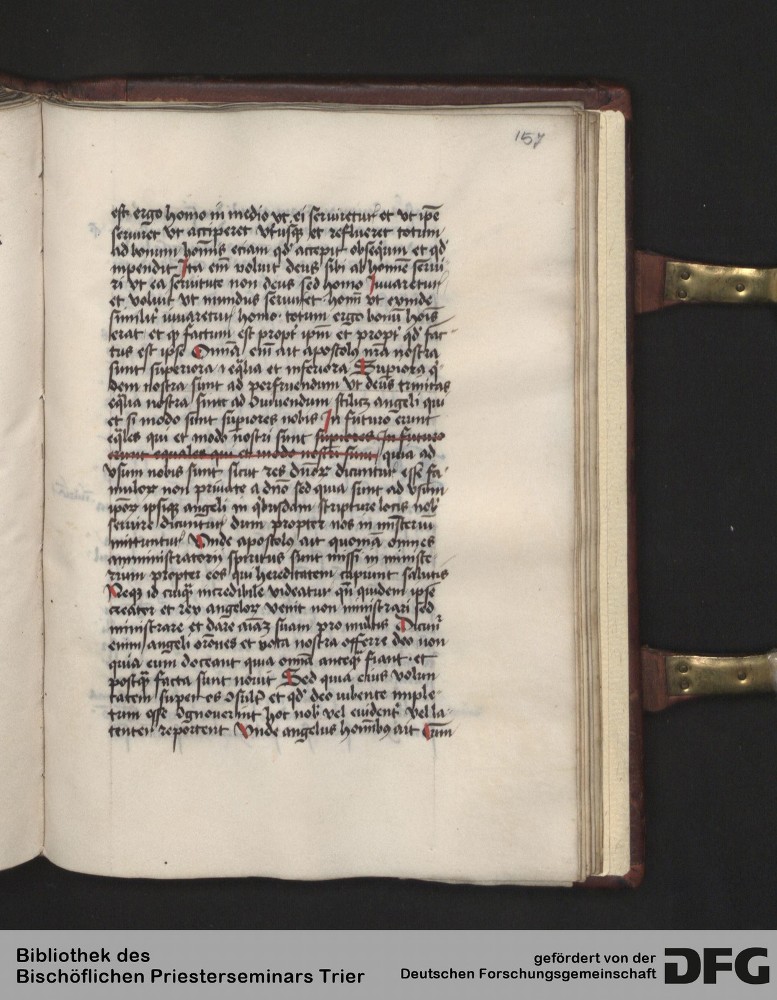 157
est ergo homo in medio vt ei seruiretur et vt ipe
seruiret vt acciperet vtrūqꝫ et reflueret totum
ad bonum hominis eciam qd accepit obsequium et qd
inpendit Ita em voluit deus sibi ab homine serui
ri vt ea seruitute non deus sed homo Iuuaretur
et voluit vt mundus seruiret homi vt exinde
similiter iuuaretur homo totum ergo bonū hois
erat et qd factum est propt ipm et propt qd fac
tus est ipse Omnia em ait apostolus nra nostra
sunt superiora et eqlia et inferiora Supiora q
dem nostra sunt ad perfruendum vt deus trinitas
eqlia nostra sunt ad conuiuendum scilicꝫ angeli qui
et si modo sunt supiores nobis In futuro erunt
eqles qui et modo nostri sunt supiores In futuro
erunt equales qui et modo nostri sunt quia ad
vsum nobis sunt sicut res dnoꝝ dicuntur esse fa
muloꝝ non priuate a dno sed quia sunt ad vsum
ipoꝝ ipsiqꝫ angeli in qbusdam scripture locis nob
seruire dicuntur dum propter nos in misteriū
mittuntur Vnde apostolus ait quoniam omnes
amministratorii spiritus sunt missi in ministe
rium propter eos qui hereditatem capiunt salutis
Neqꝫ id cuiqꝫ incredibile videatur qn quidem ipse
creator et rex angeloꝝ venit non ministrari sed
ministrare et dare aiaꝫ suam pro multis Dicunt
enim angeli orones et vota nostra offerre deo non
quia eum doceant quia omia anteqꝫ fiant et
postqꝫ facta sunt nouit Sed quia eius volun
tatem super eos ꝯsulūt et qd deo iubente imple
tum esse ꝯgnouerint hoc nob vel euident vel la
tenter reportent Vnde angelus hominibꝫ ait Cum
Bibliothek des
Bischöflichen Priesterseminars Trier
gefördert von der
Deutschen Forschungsgemeinschaft
DFG